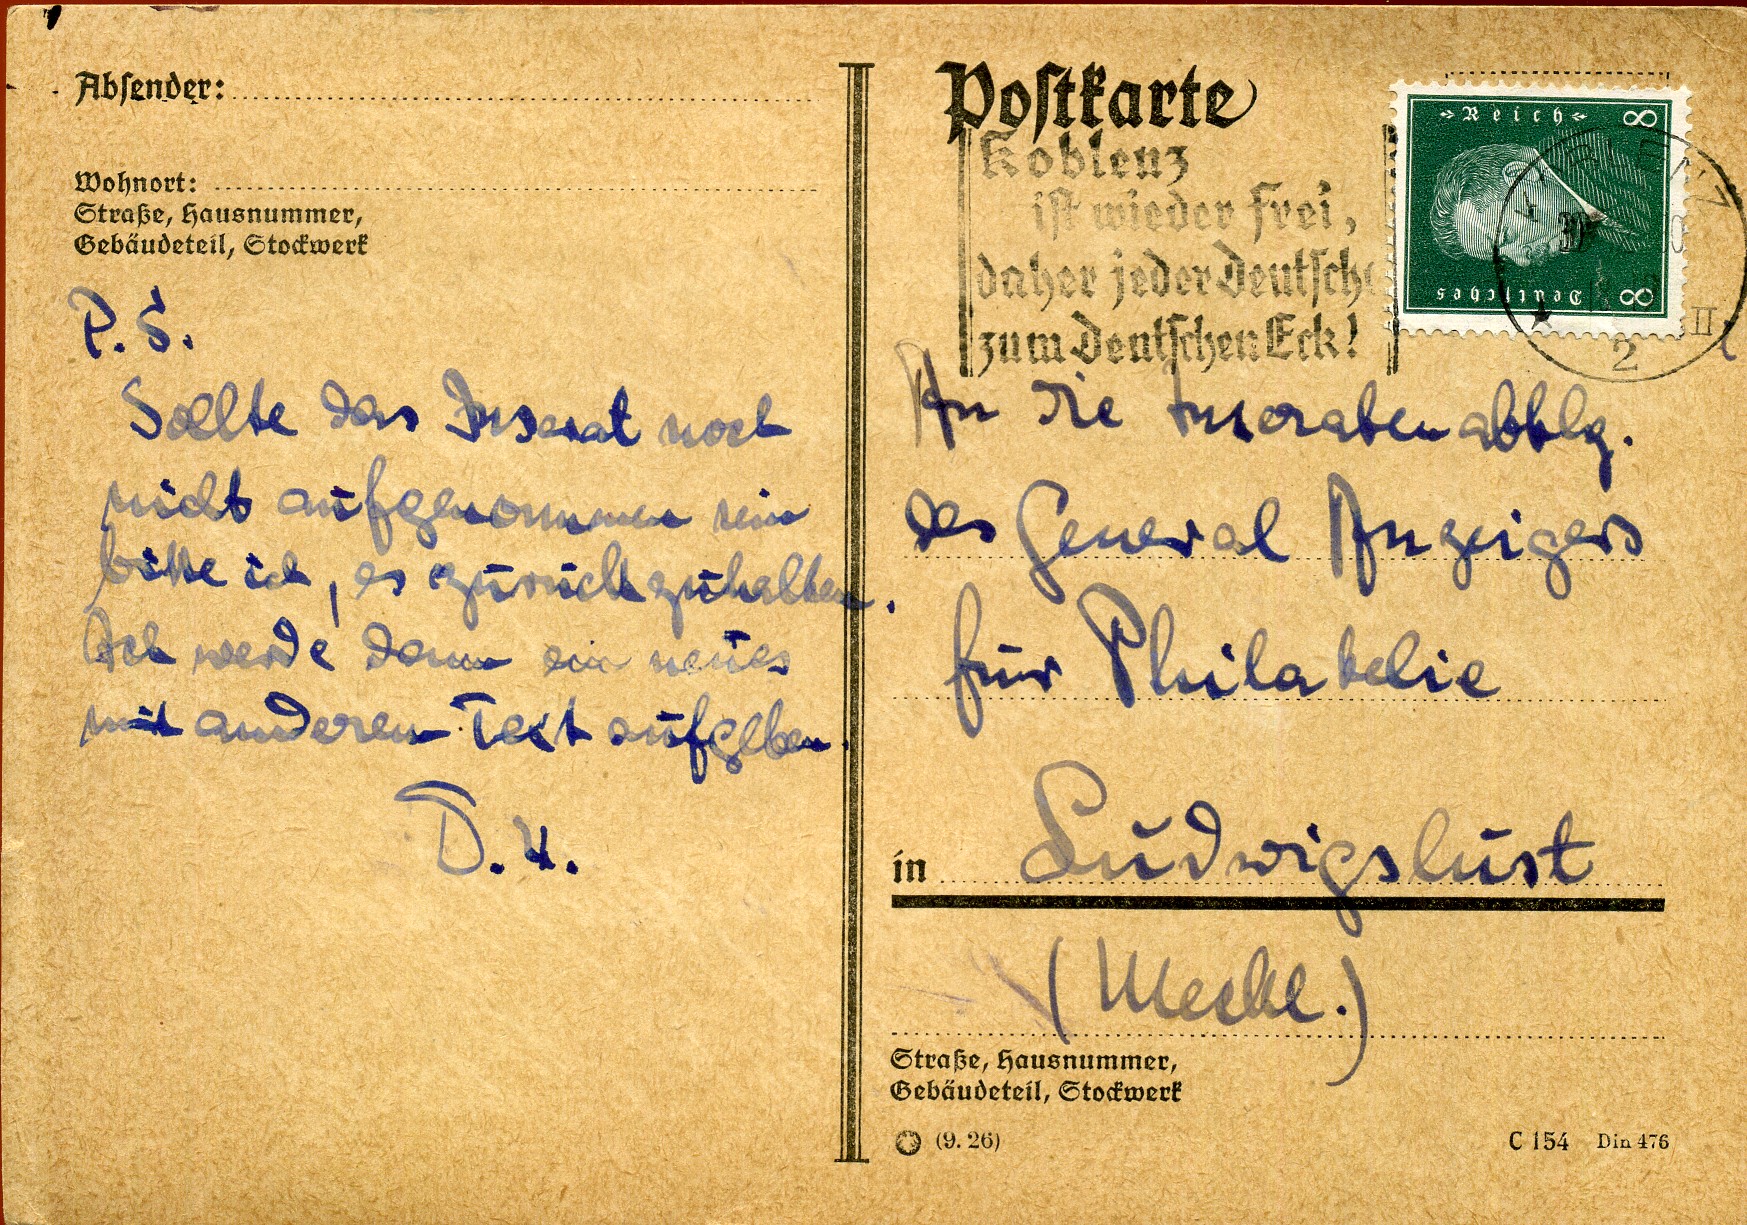 Absender:
Wohnort:
Straße, Hausnummer,
Gebäudeteil, Stockwerk
P. S.
Sollte das Inserat noch
nicht aufgenommen sein
bitte ich, es zurückzuhalten.
Ich werde dann ein neues
mit anderem Text aufgeben.
D. U.
Postkarte
Koblenz
ist wieder frei,
daher jeder Deutsche
zum Deutschen Eck!
Deutsches Reich
8 8
2
II
An die Inseratenabtlg.
des General Anzeigers
für Philatelie
in Ludwigslust
(Meckl.)
Straße, Hausnummer,
Gebäudeteil, Stockwerk
(9. 26)
C 154 Din 476